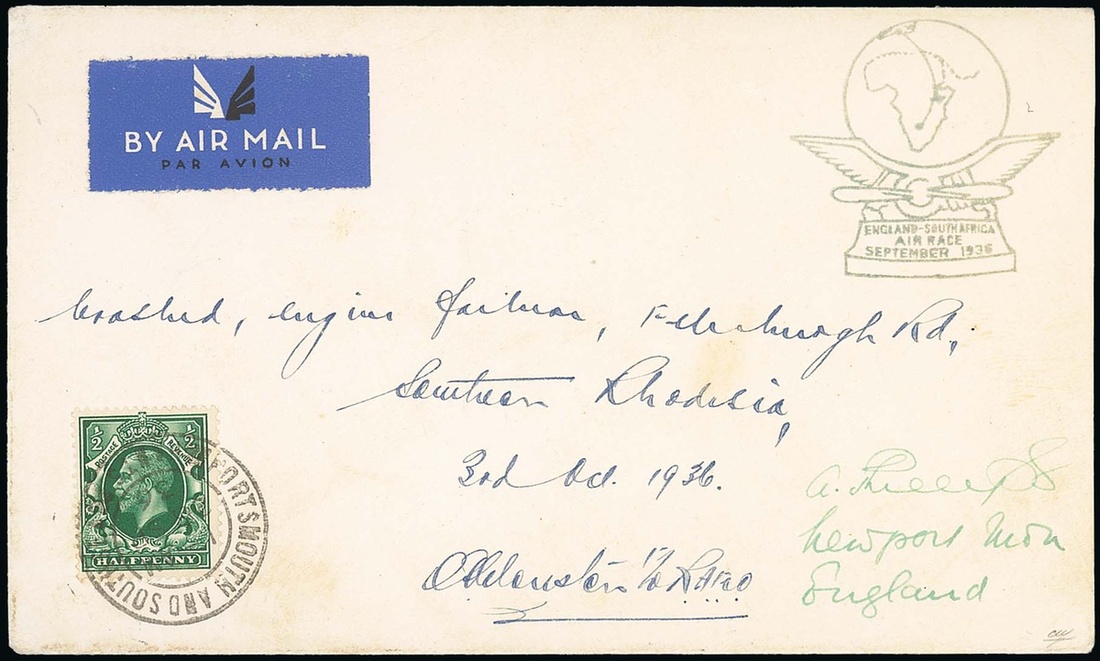 BY AIR MAIL
PAR AVION
ENGLAND-SOUTH AFRICA
AIR RACE
SEPTEMBER 1936
Crashed, engine failure, Rd,
Southern Rhodesia,
3rd Oct. 1936.
½ ½
POSTAGE REVENUE
HALFPENNY
PORTSMOUTH AND SOUTH
A.
Newport Mon
England